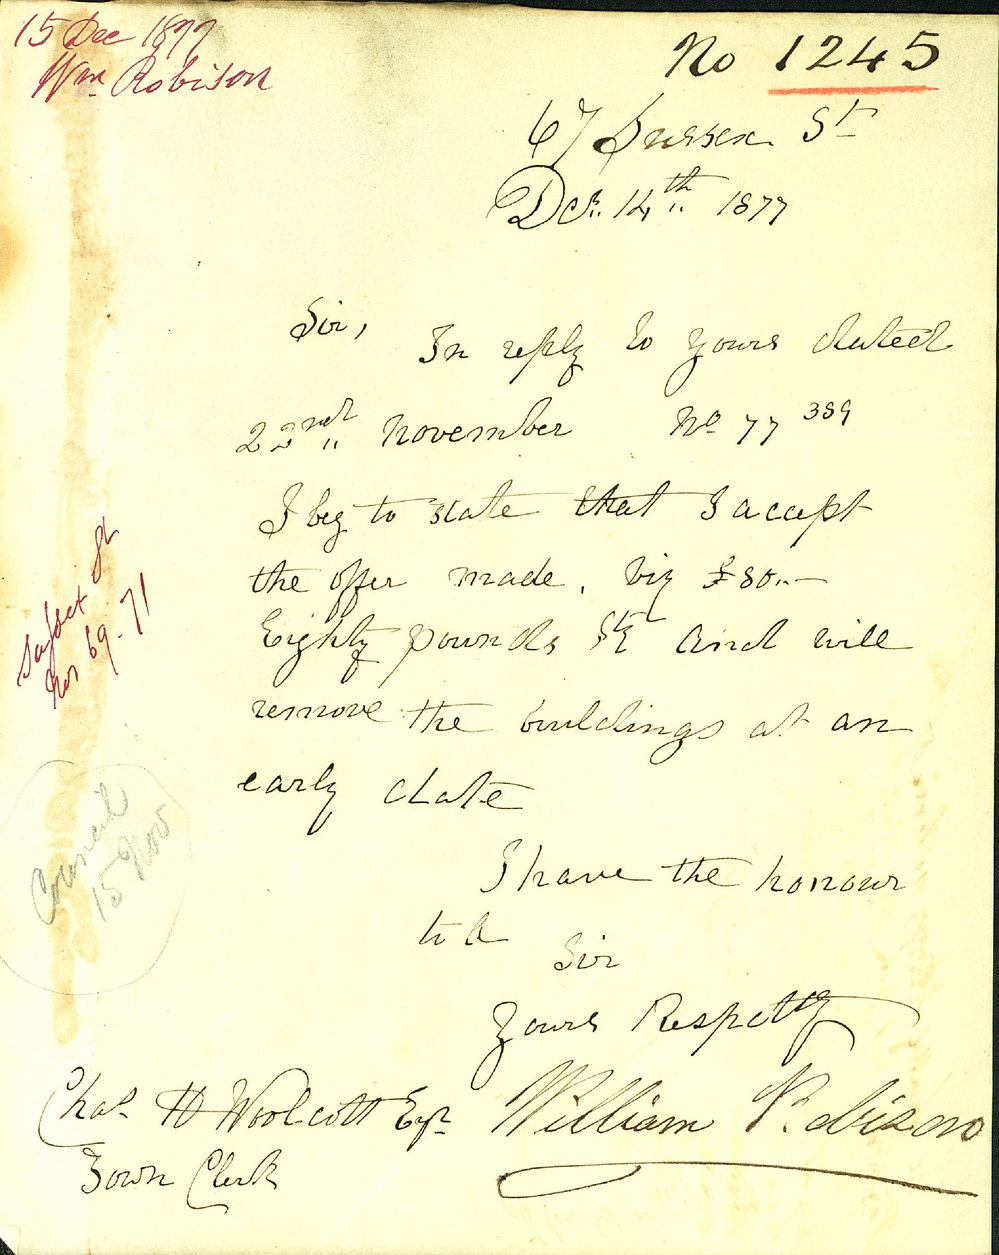 15 Dec 1877
Wm. Robison
No 1245
67 Sussex St
Dcr. 14th 1877
Sir,
In reply to yours dated
22nd November No 77 389
I beg to state that I accept
the offer made, viz £80.. —
Eighty pounds Stg and will
remove the buildings at an
early date
I have the honour
to be
Sir
Yours Respctly
William Robison
Chas. H Woolcott Esqr
Town Clerk
Sussex St
Nos 69-71
Council
15 Nov